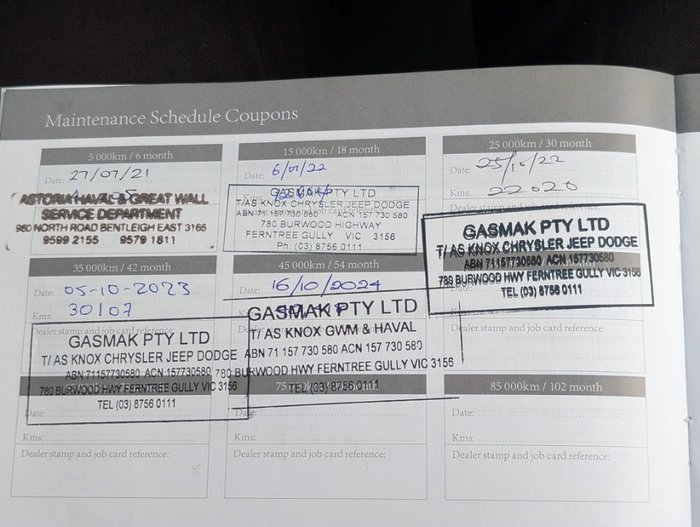 Maintenance Schedule Coupons
5 000km / 6 month
Date: 27/07/21
ASTORIA HAVAL & GREAT WALL
SERVICE DEPARTMENT
960 NORTH ROAD BENTLEIGH EAST 3165
9599 2155 9579 1811
15 000km / 18 month
Date:
Kms:
GASMAK PTY LTD
T/AS KNOX CHRYSLER JEEP DODGE
ABN 71 157 730 580 ACN 157 730 580
780 BURWOOD HIGHWAY
FERNTREE GULLY VIC 3156
Ph: (03) 8756 0111
25 000km / 30 month
Date:
Kms: 22020
GASMAK PTY LTD
T/AS KNOX CHRYSLER JEEP DODGE
ABN 71157730580 ACN 157730580
780 BURWOOD HWY FERNTREE GULLY VIC 3156
TEL (03) 8756 0111
35 000km / 42 month
Date: 05-10-2023
30107
Dealer stamp and job card reference:
GASMAK PTY LTD
T/AS KNOX CHRYSLER JEEP DODGE
ABN 71157730580 ACN 157730580
780 BURWOOD HWY FERNTREE GULLY VIC 3156
TEL (03) 8756 0111
45 000km / 54 month
Date: 16/10/2024
GASMAK PTY LTD
T/AS KNOX GWM & HAVAL
ABN 71 157 730 580 ACN 157 730 580
780 BURWOOD HWY FERNTREE GULLY VIC 3156
TEL (03) 8756 0111
Dealer stamp and job card reference:
Date:
Kms:
Dealer stamp and job card reference:
Date:
Kms:
Dealer stamp and job card reference:
85 000km / 102 month
Date:
Kms:
Dealer stamp and job card reference: